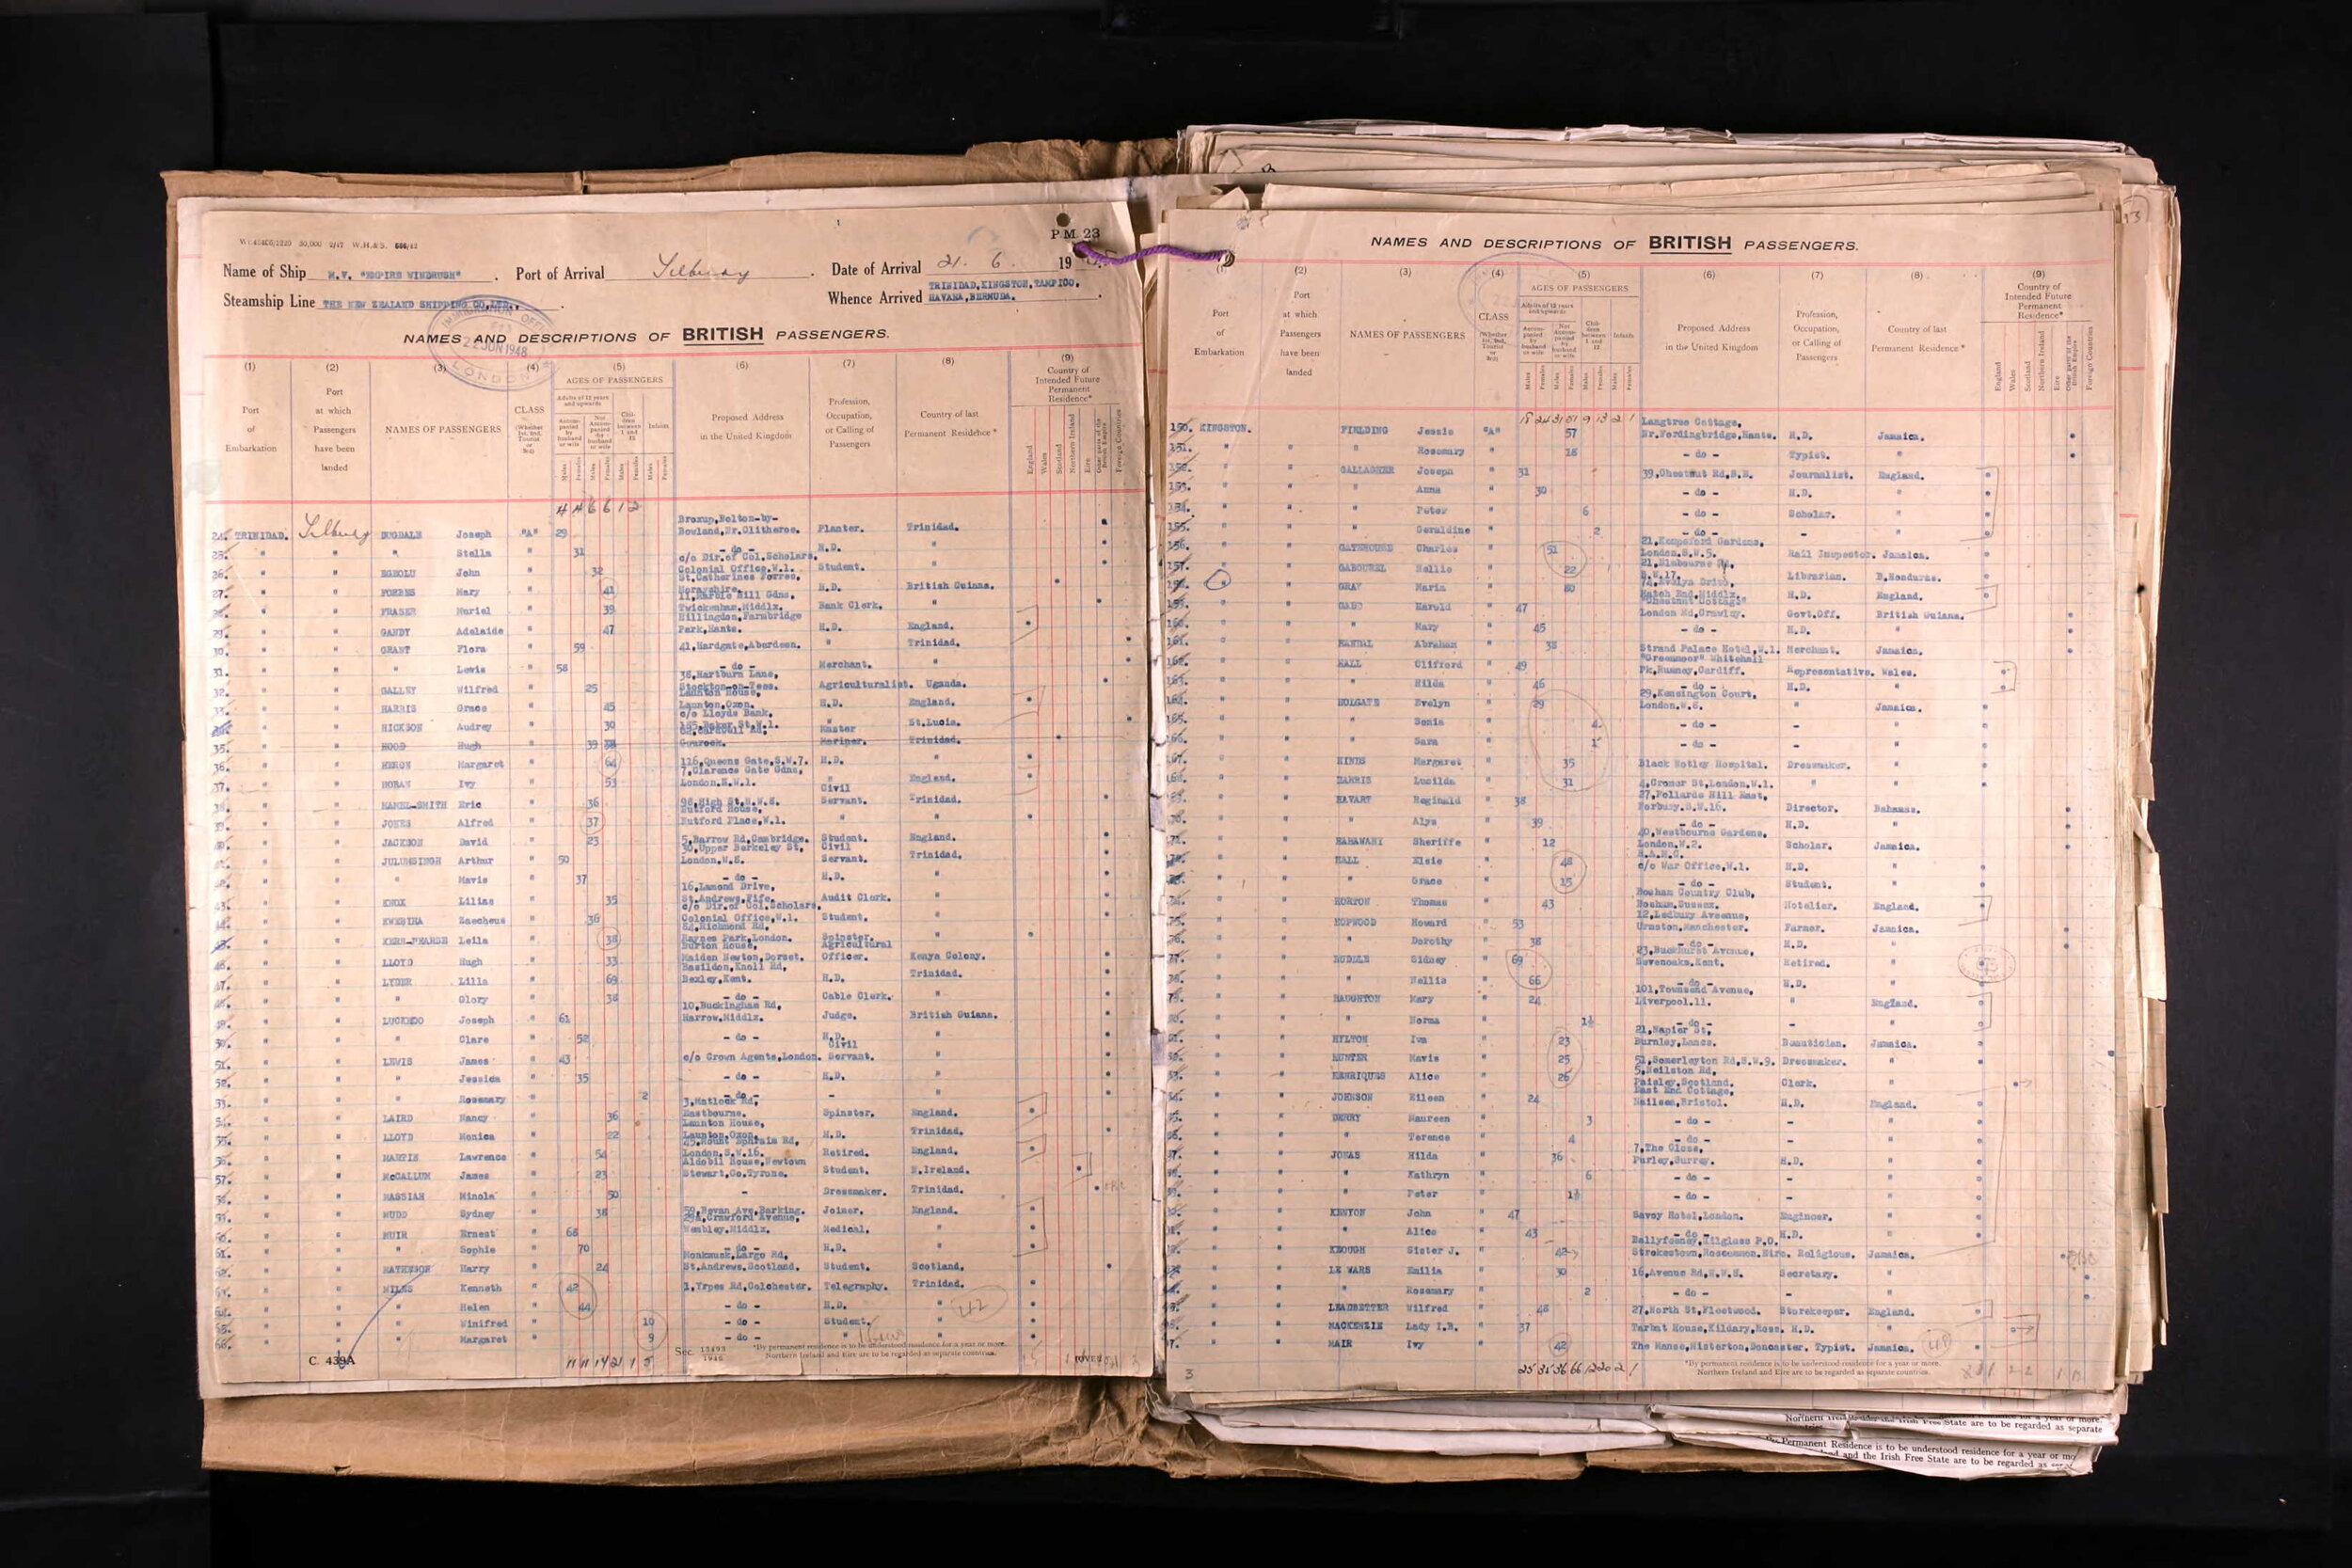 P.M. 23
Name of Ship M.V. "EMPIRE WINDRUSH". Port of Arrival Tilbury. Date of Arrival 21. 6. 19
Steamship Line THE NEW ZEALAND SHIPPING CO.,LTD. Whence Arrived TRINIDAD,KINGSTON,TAMPICO, HAVANA,BERMUDA.
IMMIGRATION OFFICER
22 JUN 1948
LONDON
NAMES AND DESCRIPTIONS OF BRITISH PASSENGERS.
(1) (2) (3) (4) (5) (6) (7) (8) (9)
Port of Embarkation
Port at which Passengers have been landed
NAMES OF PASSENGERS
CLASS (Whether 1st, 2nd, Tourist or 3rd)
AGES OF PASSENGERS
Adults of 12 years and upwards
Accompanied by husband or wife
Not Accompanied by husband or wife
Children between 1 and 12
Infants
Males Females Males Females Males Females Males Females
Proposed Address in the United Kingdom
Profession, Occupation, or Calling of Passengers
Country of last Permanent Residence*
Country of Intended Future Permanent Residence*
England Wales Scotland Northern Ireland Eire Other parts of the British Empire Foreign Countries
24. TRINIDAD. Tilbury DUGDALE Joseph "A" 29 Broxup,Bolton-by-Bowland,Nr.Clitheroe. Planter. Trinidad.
25. " " " Stella " 31 - do - H.D. "
26. " " John " 32 c/o Dir.of Col.Scholars, Colonial Office,W.1. Student. "
27. " " FORBES Mary " 41 St.Catherines Forres, Morayshire. H.D. British Guiana.
28. " " FRASER Muriel " 39 11,Marble Hill Gdns. Twickenham,Middlx. Bank Clerk. "
29. " " GANDY Adelaide " 47 Hillingdon,Farnbridge Park,Hants. H.D. England.
30. " " GRANT Flora " 59 41,Hardgate,Aberdeen. " Trinidad.
31. " " " Lewis " 58 - do - Merchant. "
32. " " GALLEY Wilfred " 25 38,Hartburn Lane, Stockton-on-Tees. Agriculturalist. Uganda.
33. " " HARRIS Grace " 45 Launton House, Launton,Oxon. H.D. England.
34. " " HICKSON Audrey " 30 c/o Lloyds Bank, Baker St.W.1. " St.Lucia.
35. " " HOOD Hugh " 39 Gourock. Master Mariner. Trinidad.
36. " " HERON Margaret " 64 116,Queens Gate,S.W.7. H.D. "
37. " " HORAN Ivy " 53 7,Clarence Gate Gdns, London.N.W.1. " England.
38. " " HAMEL-SMITH Eric " 36 98,High St,N.W.8. Civil Servant. Trinidad.
39. " " JONES Alfred " 37 Nutford House, Nutford Place,W.1. " "
40. " " JACKSON David " 23 5,Barrow Rd,Cambridge. Student. England.
41. " " JULUMSINGH Arthur " 50 30,Upper Berkeley St, London.W.2. Civil Servant. Trinidad.
42. " " " Mavis " 37 - do - H.D. "
43. " " KNOX Lilias " 35 16,Lamond Drive, St.Andrews,Fife. Audit Clerk. "
44. " " KWESIHA Zaccheus " 36 c/o Dir.of Col.Scholars, Colonial Office,W.1. Student. "
45. " " KERR-PEARSE Leila " 38 84,Richmond Rd, Raynes Park,London. Spinster. "
46. " " LLOYD Hugh " 33 Burton House, Maiden Newton,Dorset. Agricultural Officer. Kenya Colony.
47. " " LYDER Lilla " 69 Basildon,Knoll Rd, Bexley,Kent. H.D. Trinidad.
48. " " " Glory " 38 - do - Cable Clerk. "
49. " " LUCKHOO Joseph " 61 10,Buckingham Rd, Harrow.Middlx. Judge. British Guiana.
50. " " " Clare " 52 - do - H.D. "
51. " " LEWIS James " 43 c/o Crown Agents,London. Civil Servant. "
52. " " " Jessica " 35 - do - H.D. "
53. " " " Rosemary " 2 - do - - "
54. " " LAIRD Nancy " 36 3,Matlock Rd, Eastbourne. Spinster. England.
55. " " LLOYD Monica " 22 Launton House, Launton,Oxon. H.D. Trinidad.
56. " " MARTIN Lawrence " 54 45,Mount Ephraim Rd, London,S.W.16. Retired. England.
57. " " McCALLUM James " 23 Aldobil House,Newtown Stewart,Co.Tyrone. Student. N.Ireland.
58. " " MASSIAH Minola " 50 - Dressmaker. Trinidad.
59. " " MUDD Sydney " 38 59,Bevan Ave,Barking. Joiner. England.
60. " " MUIR Ernest " 68 Crawford Avenue, Wembley,Middlx. Medical. "
61. " " " Sophie " 70 - do - H.D. "
62. " " MATHEWSON Harry " 24 Monkmusk,Largo Rd, St.Andrews,Scotland. Student. Scotland.
63. " " MILES Kenneth " 42 1,Ypres Rd,Colchester. Telegraphy. Trinidad.
64. " " " Helen " 44 - do - H.D. "
65. " " " Winifred " 10 - do - Student. "
66. " " " Margaret " 9 - do - " "
C. 439A
Sec. 13493 1946
*By permanent residence is to be understood residence for a year or more. Northern Ireland and Eire are to be regarded as separate countries.
(OVER
NAMES AND DESCRIPTIONS OF BRITISH PASSENGERS.
(1) (2) (3) (4) (5) (6) (7) (8) (9)
Port of Embarkation
Port at which Passengers have been landed
NAMES OF PASSENGERS
CLASS (Whether 1st, 2nd, Tourist or 3rd)
AGES OF PASSENGERS
Adults of 12 years and upwards
Accompanied by husband or wife
Not Accompanied by husband or wife
Children between 1 and 12
Infants
Males Females Males Females Males Females Males Females
Proposed Address in the United Kingdom
Profession, Occupation, or Calling of Passengers
Country of last Permanent Residence*
Country of Intended Future Permanent Residence*
England Wales Scotland Northern Ireland Eire Other parts of the British Empire Foreign Countries
150. KINGSTON. FIELDING Jessie "A" 57 Langtree Cottage, Nr.Fordingbridge,Hants. H.D. Jamaica.
151. " " " Rosemary " 18 - do - Typist. "
152. " " GALLAGHER Joseph " 31 39,Chestnut Rd,S.E. Journalist. England.
153. " " " Anna " 30 - do - H.D. "
154. " " " Peter " 6 - do - Scholar. "
155. " " " Geraldine " 2 - do - - "
156. " " GATEHOUSE Charles " 51 21,Kempsford Gardens, London.S.W.5. Rail Inspector. Jamaica.
157. " " GABOUREL Nellie " 22 N.17. Librarian. B.Honduras.
158. " " GRAY Maria " 80 74,Evelyn Drive, Hatch End,Middlx. H.D. England.
159. " " GADD Harold " 47 "Chestnut Cottage" London Rd,Crawley. Govt.Off. British Guiana.
160. " " " Mary " 45 - do - H.D. "
161. " " HANDAL Abraham " 38 Strand Palace Hotel,W.1. Merchant. Jamaica.
162. " " HALL Clifford " 49 "Greenmoor" Whitehall Pk,Rumney,Cardiff. Representative. Wales.
163. " " " Hilda " 46 - do - H.D. "
164. " " HOLGATE Evelyn " 29 29,Kensington Court, London.W.8. " Jamaica.
165. " " " Sonia " 4 - do - - "
166. " " " Sara " 1 - do - - "
167. " " HINDS Margaret " 35 Black Notley Hospital. Dressmaker. "
168. " " HARRIS Lucilda " 31 4,Cromer St,London.W.1. " "
69. " " HAVART Reginald " 38 27,Pollards Hill East, Norbury.S.W.16. Director. Bahamas.
70. " " " Alys " 39 - do - H.D. "
71. " " HABAWANI Sheriffe " 12 40,Westbourne Gardens, London,W.2. Scholar. Jamaica.
72. " " HALL Elsie " 48 c/o War Office,W.1. H.D. "
73. " " " Grace " 15 - do - Student. "
74. " " HORTON Thomas " 43 Bosham Country Club, Bosham,Sussex. Hotelier. England.
75. " " HOPWOOD Howard " 53 12,Ledbury Avenue, Urmston,Manchester. Farmer. Jamaica.
76. " " " Dorothy " 38 - do - H.D. "
77. " " RUDDLE Sidney " 69 23,Buckhurst Avenue, Sevenoaks.Kent. Retired. "
78. " " " Nellie " 66 - do - H.D. "
79. " " HAUGHTON Mary " 24 101,Townsend Avenue, Liverpool.11. " England.
80. " " " Norma " 1½ - do - - "
81. " " HYLTON Iva " 23 21,Napier St, Burnley,Lancs. Beautician. Jamaica.
82. " " HUNTER Mavis " 25 51,Somerleyton Rd,S.W.9. Dressmaker. "
83. " " HENRIQUES Alice " 26 5,Neilston Rd, Paisley,Scotland. Clerk. "
84. " " JOHNSON Eileen " 24 East End Cottage, Nailsea,Bristol. H.D. England.
85. " " DERRY Maureen " 3 - do - - "
86. " " " Terence " 4 - do - - "
87. " " JONAS Hilda " 36 7,The Close, Purley,Surrey. H.D. "
88. " " " Kathryn " 6 - do - - "
89. " " " Peter " 1½ - do - - "
90. " " KENYON John " 47 Savoy Hotel,London. Engineer. "
91. " " " Alice " 43 - do - H.D. "
92. " " KEOUGH Sister J. " 42 Ballyfeeney,Kilglass P.O. Strokestown,Roscommon.Eire. Religious. Jamaica.
93. " " LE WARS Emilia " 30 16,Avenue Rd,N.W.8. Secretary. "
94. " " " Rosemary " 2 - do - - "
95. " " LEADBETTER Wilfred " 48 27,North St,Fleetwood. Storekeeper. England.
96. " " MACKENZIE Lady I.B. " 37 Tarbat House,Kildary,Ross. H.D. "
97. " " MAIR Ivy " 42 The Manse,Misterton,Doncaster. Typist. Jamaica.
3
*By permanent residence is to be understood residence for a year or more. Northern Ireland and Eire are to be regarded as separate countries.
State are to be regarded as separate
Permanent Residence is to be understood residence for a year or mo
and the Irish Free State are to be regarded as